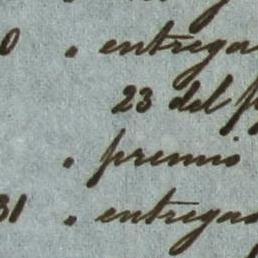 0 " entrega
23 del p
" premio
31 " entregad